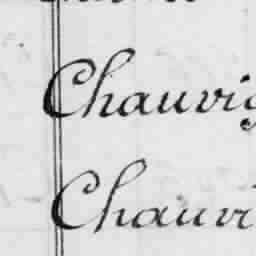 Chauvig
Chauvi